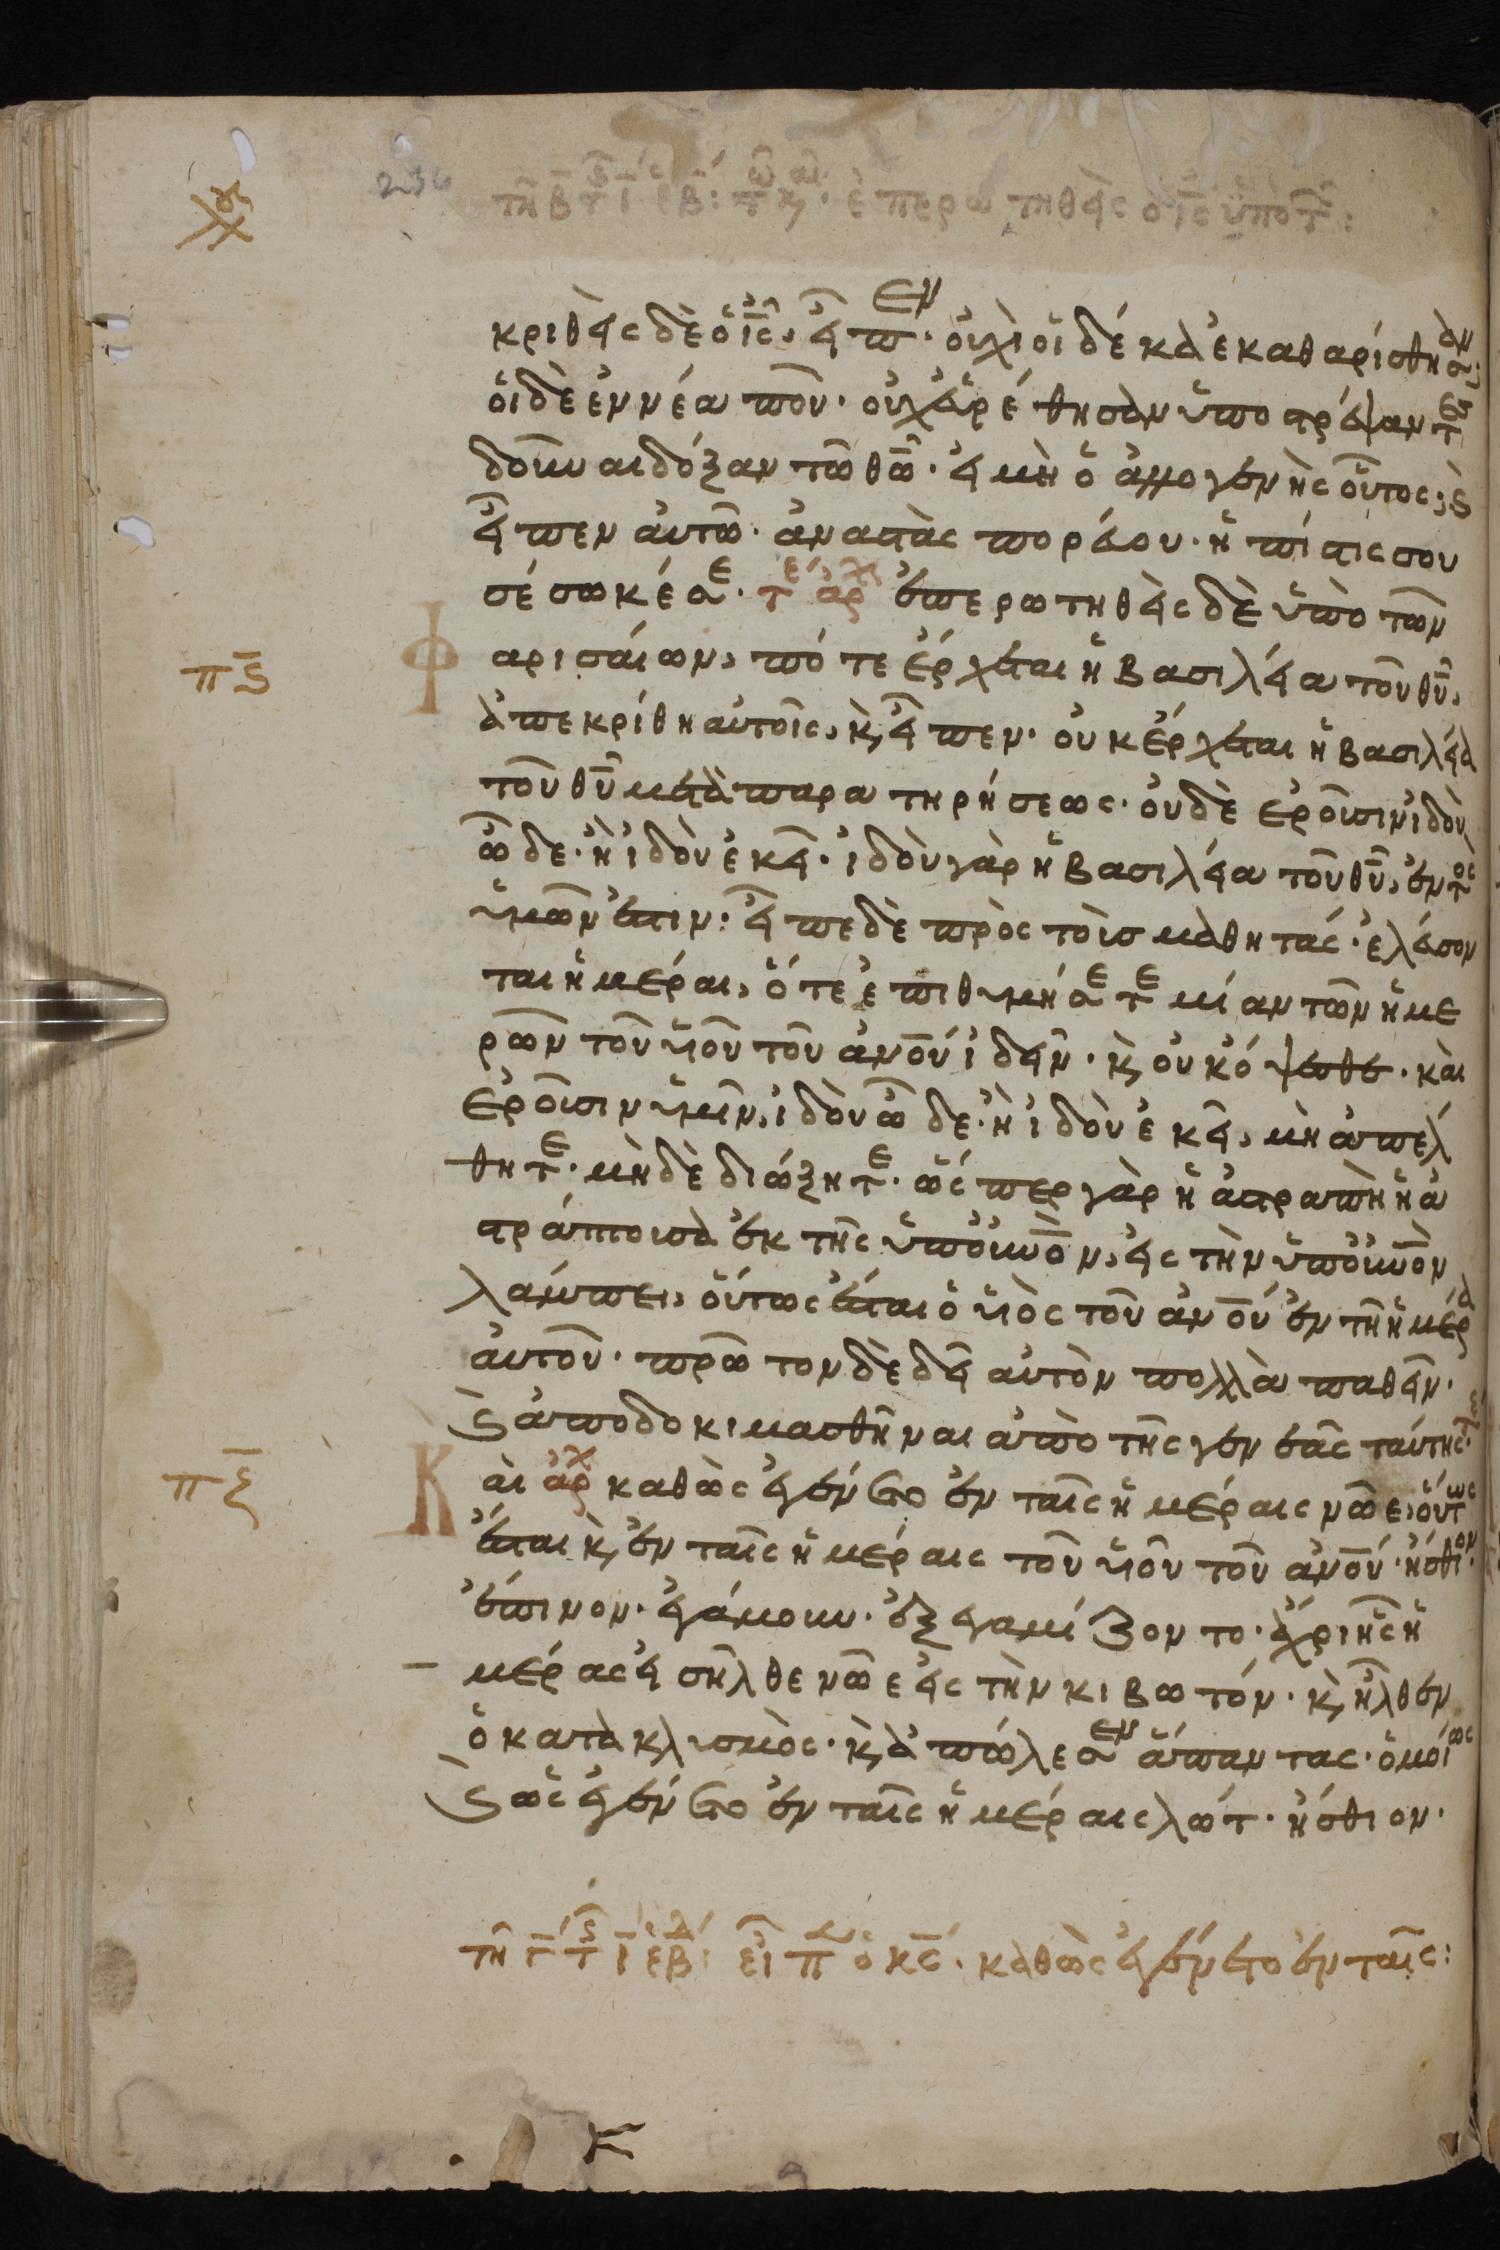 τῆ β̅ τ ι̅ ἑβ: τ κ, ἐπερωτηθεὶς ὁ ι̅ς̅ ὑπὸ τ:
κριθεὶς δὲ ὁ ι̅ς̅, εἶπεν· οὐχὶ οἱ δέκα ἐκαθαρίσθησαν;
οἱ δὲ ἐννέα ποῦ· οὐχ εὑρέθησαν ὑποστρέψαντες
δοῦναι δόξαν τῶ θ̅ω̅· εἰ μὴ ὁ ἀλλογενὴς οὗτος; καὶ
εἶπεν αὐτῶ· ἀναστὰς πορεύου· ἡ πίστις σου
σέσωκέ σε· τέ ἀρχ ἐπερωτηθεὶς δὲ ὑπὸ τῶν
π̅ς̅ Φαρισαίων, πότε ἔρχεται ἡ βασιλεία τοῦ θ̅υ̅,
ἀπεκρίθη αὐτοῖς, κ, εἶπεν· οὐκ ἔρχεται ἡ βασιλεία
τοῦ θ̅υ̅ μετὰ παρατηρήσεως· οὐδὲ ἐροῦσιν ἰδοὺ
ὧδε· ἢ ἰδοὺ ἐκεῖ· ἰδοὺ γὰρ ἡ βασιλεία τοῦ θ̅υ̅, ἐντὸς
ὑμῶν ἐστιν: εἶπε δὲ πρὸς τοὺσ μαθητάς· ἐλεύσον
ται ἡμέραι, ὅτε ἐπιθυμήσετε μίαν τῶν ἡμε
ρῶν τοῦ υἱοῦ τοῦ ἀν̅ο̅υ̅ ἰδεῖν· κ, οὐκ ὄψεσθε· καὶ
ἐροῦσιν ὑμῖν, ἰδοὺ ὧδε· ἢ ἰδοὺ ἐκεῖ, μὴ ἀπέλ
θητε· μὴδὲ διώξητε· ὥσπερ γὰρ ἡ ἀστραπὴ ἡ ἀ
στράπτουσα ἐκ τῆς ὑπ' οὐ̅νο̅ν, εἰς τὴν ὑπ' οὐ̅νο̅ν
λάμπει, οὕτως ἔσται ὁ υἱὸς τοῦ ἀν̅ο̅υ̅ ἐν τῆ ἡμέρα
αὐτοῦ· πρῶτον δὲ δεῖ αὐτὸν πολλὰ παθεῖν·
καὶ ἀποδοκιμασθῆναι ἀπὸ τῆς γενεᾶς ταύτης·
π̅ζ̅ Καὶ ἀρχ καθὼς ἐγένετο ἐν ταῖς ἡμέραις νῶε, οὕτως
ἔσται κ, ἐν ταῖς ἡμέραις τοῦ υἱοῦ τοῦ ἀν̅ο̅υ̅· ἤσθιον·
ἔπινον· ἐγάμουν· ἐξεγαμίζοντο· ἄχρι ἧς ἡ
μέρας εἰσῆλθε νῶε εἰς τὴν κιβωτόν· κ, ἦλθεν
ὁ κατακλυσμὸς· κ, ἀπώλεσεν ἅπαντας· ὁμοίως
καὶ ὡς ἐγένετο ἐν ταῖς ἡμέραις λώτ· ἤσθιον·
τῆ γ̅ τ ι̅ ἑβδ: εἶπ ὁ κ̅ς̅· καθὼς ἐγένετο ἐν ταῖς: